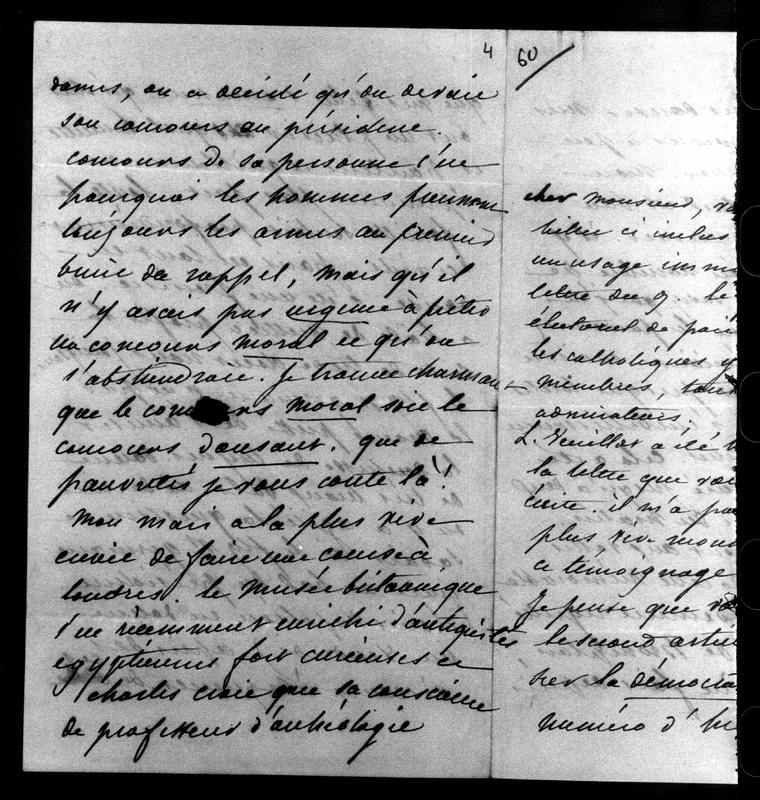 4
dames, on a décidé qu'on devait
son concours au président.
concours de sa personne c'est
pourquoi les hommes prennent
toujours les armes au premier
bruit du rappel, mais qu'il
n'y avait pas urgence à prêter
un concours moral et qu'on
s'abstiendrait. Je trouve charmant
que le concours moral soit le
concours dansant. que de
pauvretés je vous conte là!
Mon mari a la plus vive
envie de faire une course à
londres. le musée britannique
s'est récemment enrichi d'antiquités
egyptiennes fort curieuses et
charles croit que sa conscience
de professeur d'archéologie
60
cher monsieur,
billet ci inclus
un usage imm
lettre du 9. le
électoral de pari
les catholiques y
membres, tou
admirateurs,
L. Veuillot a été
la lettre que
écrite. il n'a pa
plus vive
ce témoignage
Je pense que
le second arti
sur la démocra
numéro d'